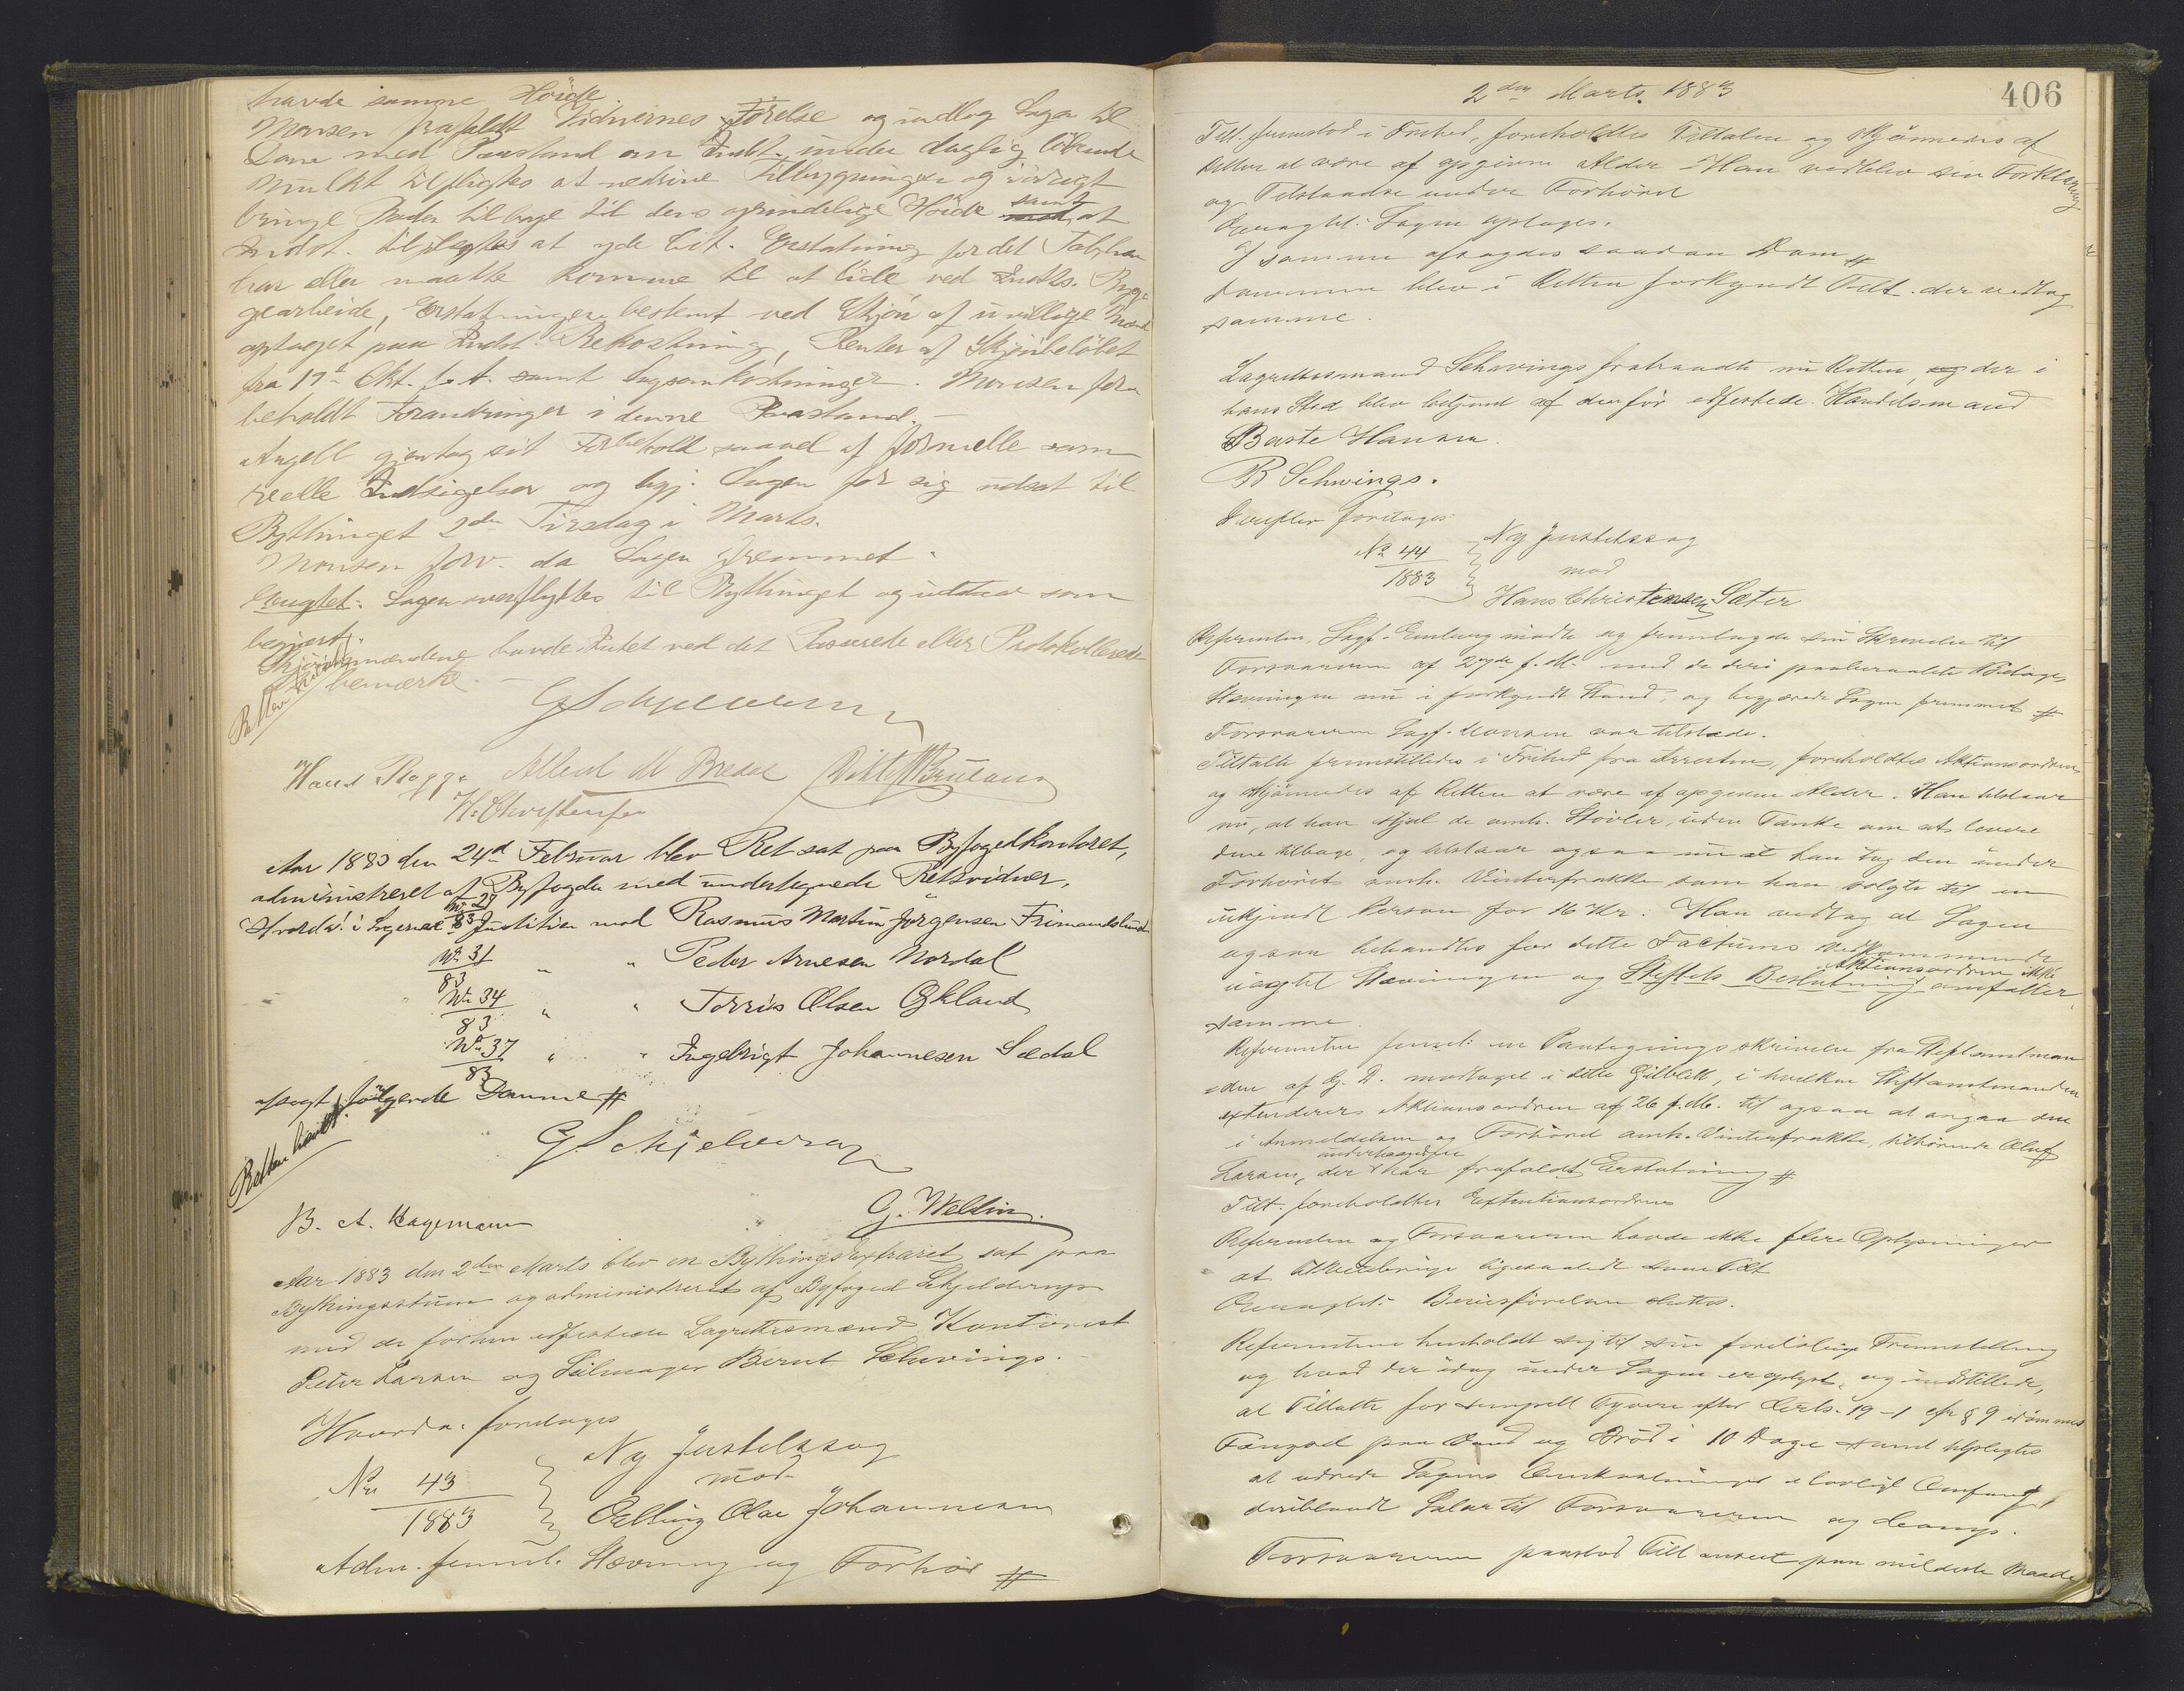 havde samme Høide.
Monsen frafaldt Vidnernes Førelse og indlog Sagen til
Dom med Paastand om Indst. under daglig løbende
Mulkt tilpligtes at nedrive Tilbygningen og iøvrigt
bringe Gaden tilbage til dens oprindelige Høide samt at
Indst. tilpligtes at yde Cit. Erstatning for det Tab, han
har eller maatte komme til at lide ved Indsts. Byg-
gearbeide, Erstatningen bestemt ved Skjøn af uvillige Mænd
optaget paa Indst. Bekostning, Renter af Skjønbeløbet
fra 17de Okt. f. A. samt Sagsomkostninger. Monsen for-
beholdt Forandringer i denne Paastand.-
Angell gjentog sit Forbehold saavel af formelle som
reelle Indsigelser og begj. Sagen for sig udsat til
Bythinget 2den Tirsdag i Marts.
Monsen forv. da Sagen fremmet.
Eragtet: Sagen overflyttes til Bythinget og udstaar som
begjært.
Skjønsmændene havde Intet ved det Passerede eller Protokollerede
at bemærke.-
Retten hævet
G Schjelderup
Hans Plogg. Albert M Bredal
H. Christensen
Aar 1883 den 24d Februar blev Ret sat paa Byfogedkontoret,
administreret af Byfogden med undertegnede Retsvidner,
Hvorda: i Sagerne No 29/83 Justitien mod Rasmus Martin Jørgensen Frimandslund
No 31/83 " " Peder Arnesen Nordal
No 34/83 " " Torris Olsen Økland
No 37/83 " " Ingebrigt Johannesen Sædal
afsagt følgende Domme #
Retten hævet.
G. Schjelderup
B. A. Hagemann G. Welsin.
Aar 1883 den 2den Marts blev en Bythingsextraret sat paa
Bythingsstuen og administreret af Byfoged Schjelderup
med de forhen edfæstede Lagrettesmænd Kontorist
Peter Larsen og Seilmager Bernt Schwings.-
Hvorda: foretages
Ny Justitssag
No 43 mod
1883 Elling Olai Johannesen
Adm. freml. Stævning og Forhør #
2den Marts 1883
406
Tilt. fremstod i Frihed, foreholdtes Tiltalen og skjønnedes af
Retten at være af opgiven Alder - Han vedblev sin Forklaring
og Tilstaaelse under Forhøret
Eragtet: Sagen optages.
I samme afsagdes saadan Dom #
Dommen blev i Retten forkyndt Tilt. der vedtog
samme.
Lagrettesmand Schwings fratraadte nu Retten, og der i
hans Sted blev betjent af den før edfæstede Handelsmand
Baste Hansen.
B Schwings.
Derefter foretages:
No 44 Ny Justitssag
1883 mod
Hans Christensen Sæter
Referenten, Sagf. Emberg mødte og fremlagde sin Skrivelse til
Forsvareren af 27de f. M. med de deri paaberaabte Bilage,
Stævningen nu i forkyndt Stand, og begjærede Sagen fremmet #
Forsvareren Sagf. Monsen var tilstede.
Tiltalte fremstilledes i Frihed fra Arresten, foreholdtes Aktionsordren
og skjønnedes af Retten at være af opgiven Alder. Han tilstaar
nu, at han stjal de omh. Støvler, uden Tanke om at levere
dem tilbage, og tilstaar ogsaa nu at han tog den under
Forhøret omh. Vinterfrakke som han solgte til en
ukjendt Person for 16 Kr. Han vedtog at Sagen
ogsaa behandles for dette Factums Vedkommende
uagtet Stævningen og Stiftets Beslutning Aktionsordren ikke omfatter
samme.
Referenten freml: en Paategningsskrivelse fra Stiftamtman-
den af G. D. modtaget i dette Øieblik, i hvilken Stiftamtmanden
extenderer Aktionsordren af 26 f. M. til ogsaa at angaa den
i Anmeldelsen og Forhøret omh. Vinterfrakke, tilhørende Oluf
Larsen, der har frafaldt Erstatning #
Tilt. foreholdtes Extentionsordren
Referenten og Forsvareren havde ikke flere Oplysninger
at tilveiebringe ligesaalidt som Tilt
Eragtet: Bevisførelsen sluttes.
Referenten henholdt sig til sin foreløbige Fremstilling
og hvad der idag under Sagen er oplyst, og indstillede,
at Tiltalte for simpelt Tyveri efter Crls. 19-1 cfr § 9 idømmes
Fængsel paa Vand og Brød i 10 Dage samt tilpligtes
at udrede Sagens Omkostninger i lovligt Omfang,
deriblandt Salar til Forsvareren og decomp.
Forsvareren paastod Tilt anseet paa mildeste Maade